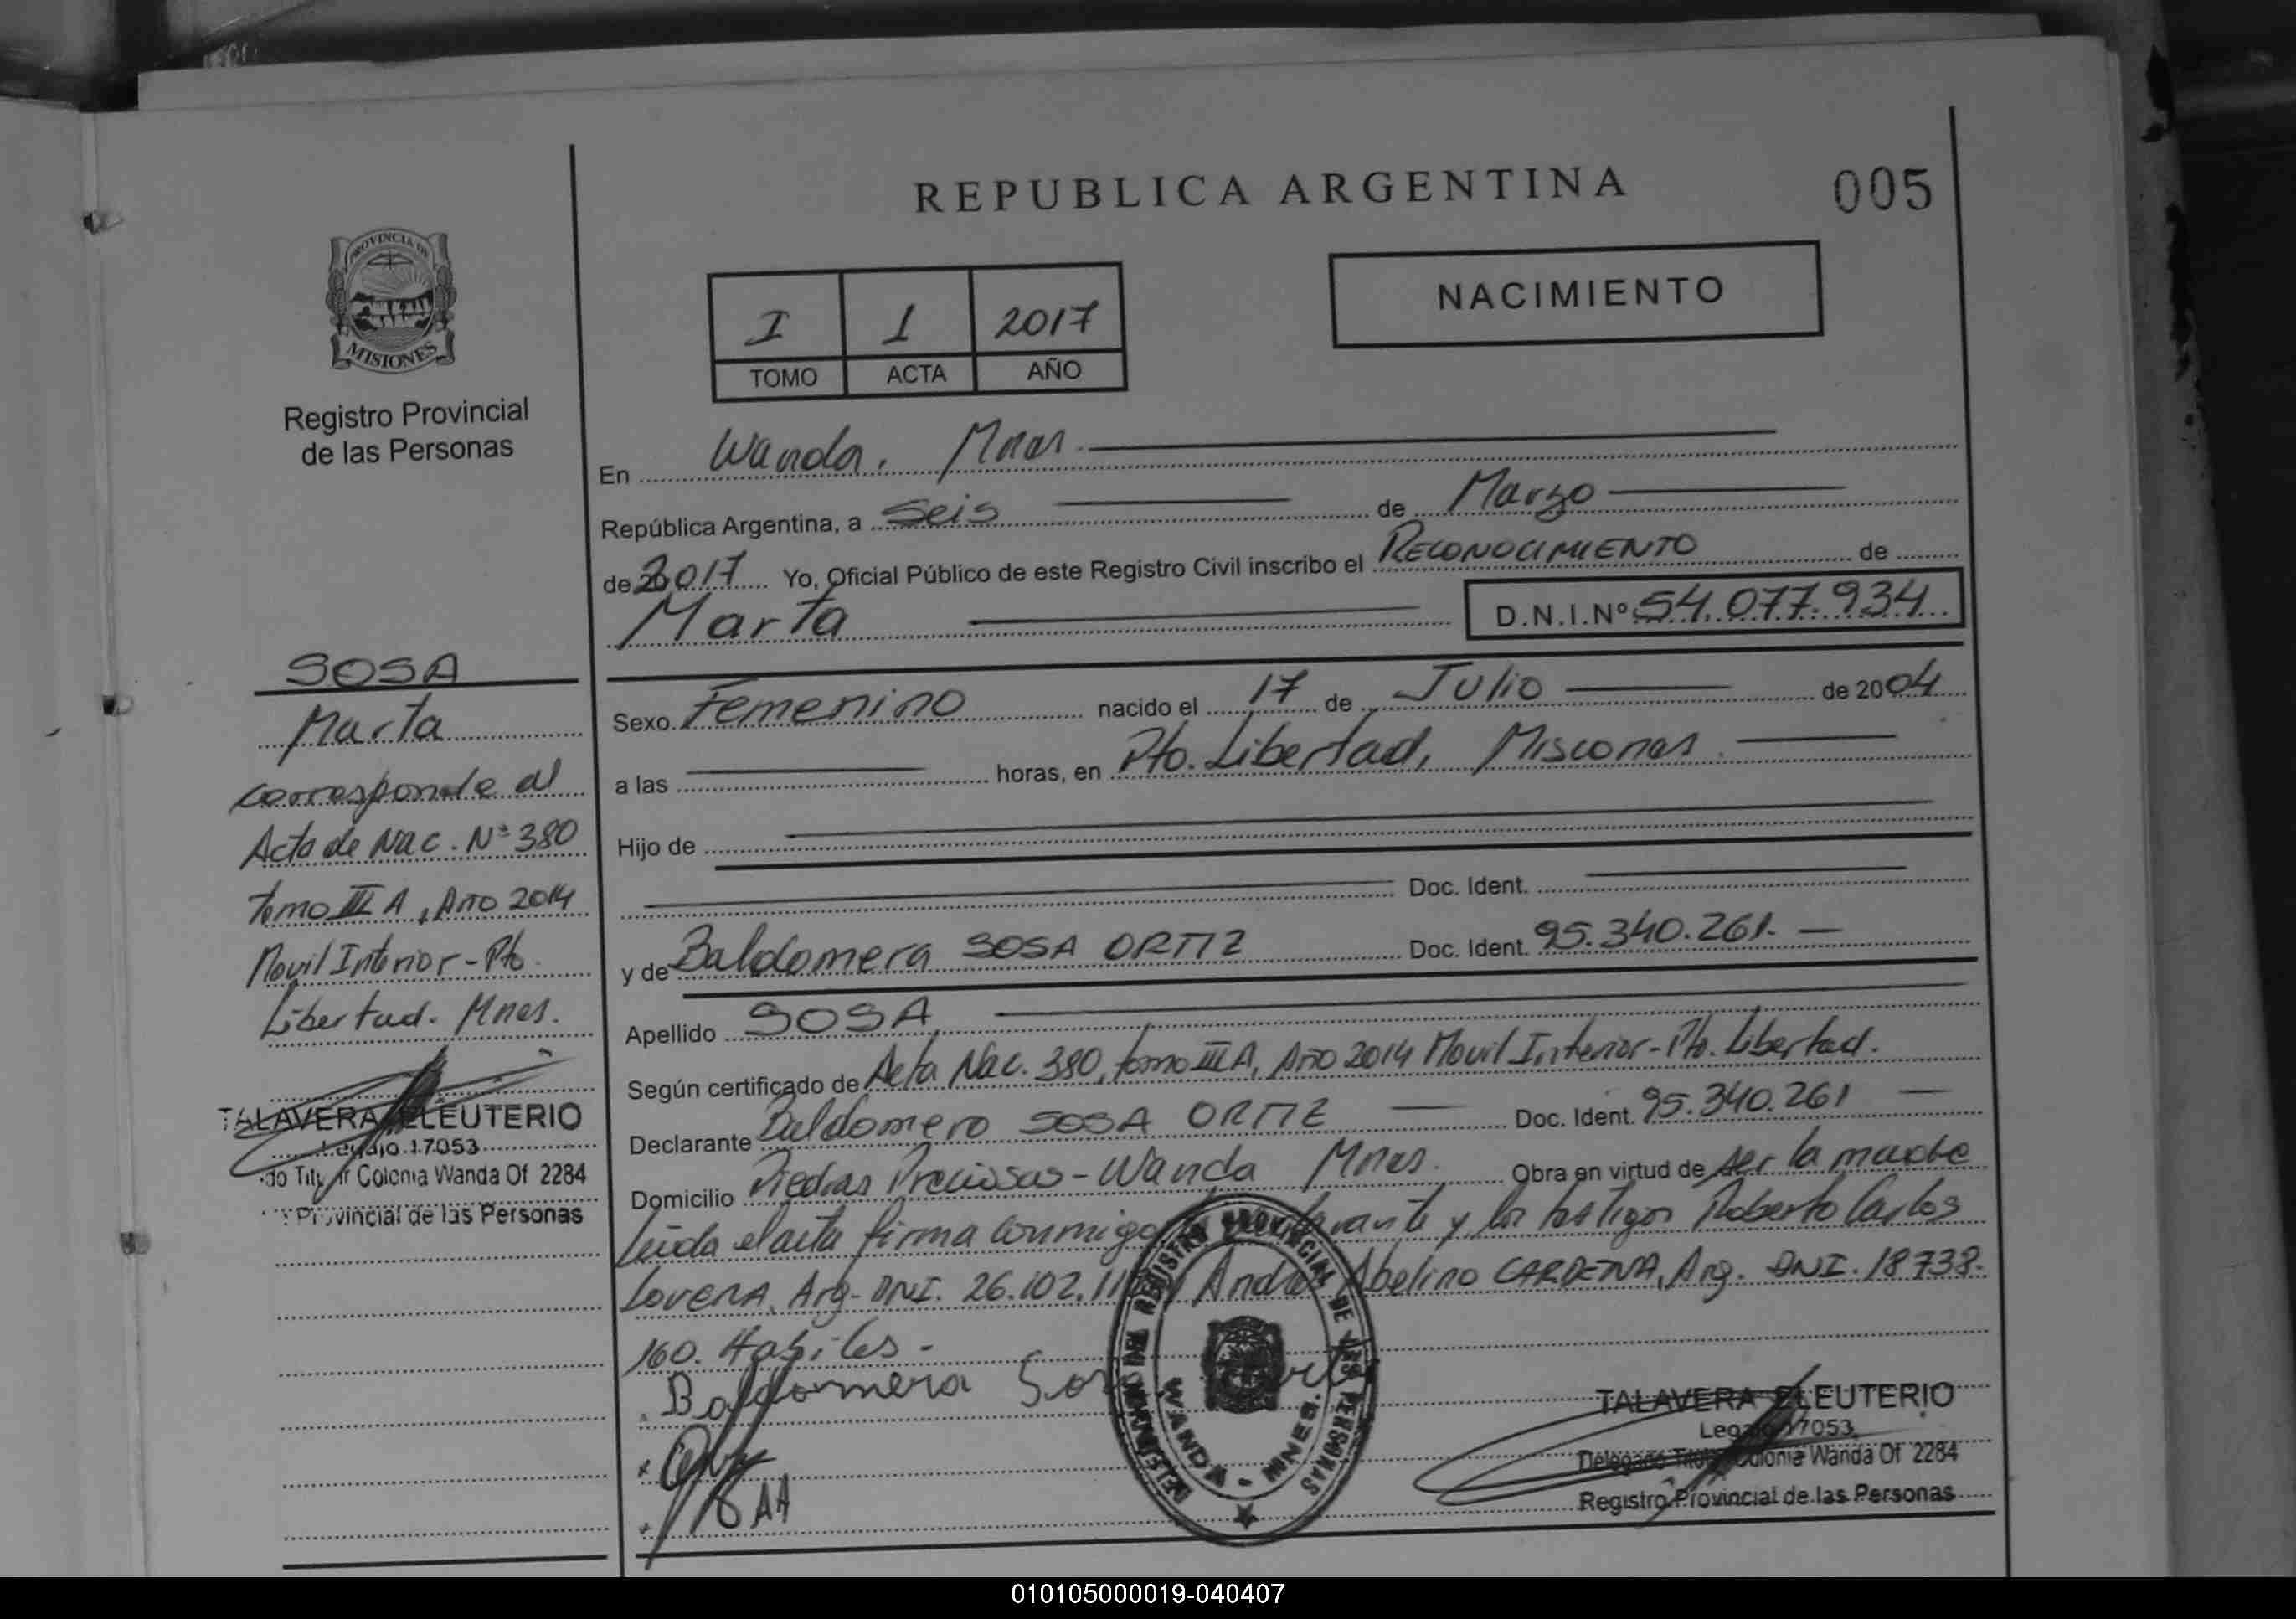 REPUBLICA ARGENTINA
005
PROVINCIA DE
MISIONES
Registro Provincial
de las Personas
NACIMIENTO
I 1 2017
TOMO ACTA AÑO
En Wanda, Mnes.
República Argentina, a Seis de Marzo
de 2017 Yo, Oficial Público de este Registro Civil inscribo el RECONOCIMIENTO de
Marta D.N.I.Nº 54.077.934
Sexo Femenino nacido el 17 de Julio de 2004
a las horas, en Pto. Libertad, Misiones
Hijo de
Doc. Ident.
y de Baldomera SOSA ORTIZ Doc. Ident. 95.340.261.
Apellido SOSA
Según certificado de Acta Nac. 380, tomo III A, Año 2014 Movil Interior - Pto. Libertad.
Declarante Baldomero SOSA ORTIZ Doc. Ident. 95.340.261
Domicilio Piedras Preciosas - Wanda Mnes. Obra en virtud de ser la madre
Leida el acta firma conmigo y los testigos Roberto Carlos
LOVERA, Arg. DNI. 26.102. Abelino CARDENA, Arg. DNI. 18.738.
160. Habiles.
Baldomera
AA
SOSA
Marta
corresponde al
Acta de Nac. Nº 380
tomo III A, Año 2014
Movil Interior - Pto.
Libertad. Mnes.
TALAVERA ELEUTERIO
Legajo 17053
Colonia Wanda Of 2284
Provincial de las Personas
REGISTRO PROVINCIAL DE LAS PERSONAS
WANDA - MNES.
TALAVERA ELEUTERIO
Legajo 17053
Delegado Titular Colonia Wanda Of 2284
Registro Provincial de las Personas
010105000019-040407